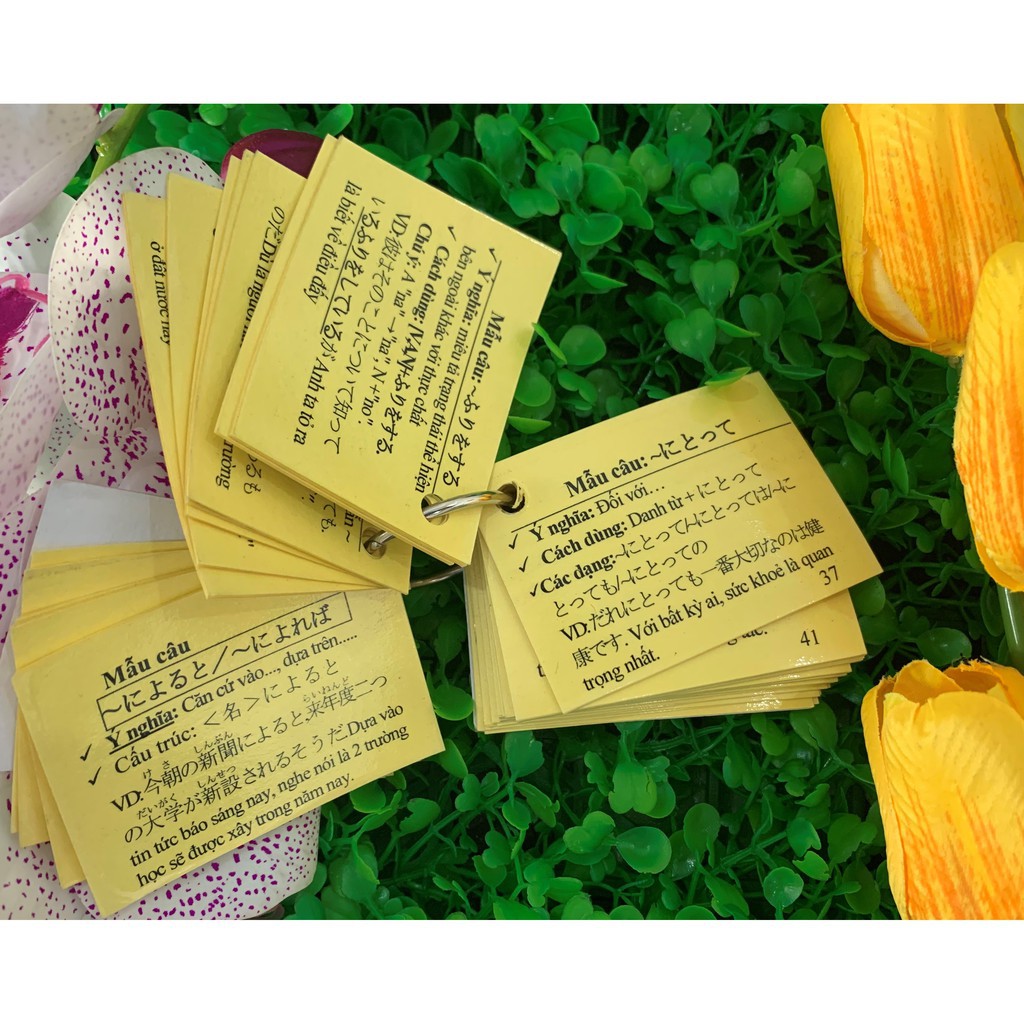 Mẫu câu: ~ふりをする
✓ Ý nghĩa: miêu tả trạng thái thể hiện
bên ngoài khác với thực chất
✓ Cách dùng:
Chú ý: A "na" → "na", N + "no".
VD:彼はそのことについて知って
いるふりをしているが Anh ta tỏ ra
là biết về điều đấy
ở đất nước này
Mẫu câu: ~にとって
✓ Ý nghĩa: Đối với…
✓ Cách dùng: Danh từ + にとって
✓ Các dạng:~にとって/~にとっては/~に
とっても/~にとっての
VD:だれにとっても一番大切なのは健
康です. Với bất kỳ ai, sức khoẻ là quan
trọng nhất.
37
41
Mẫu câu
~によると/~によれば
✓ Ý nghĩa: Căn cứ vào..., dựa trên.....
✓ Cấu trúc: <名>によると
けさ しんぶん らいねんど
VD:今朝の新聞によると来年度二つ
だいがく しんせつ
の大学が新設されるそうだ.Dựa vào
tin tức báo sáng nay, nghe nói là 2 trường
học sẽ được xây trong năm nay.